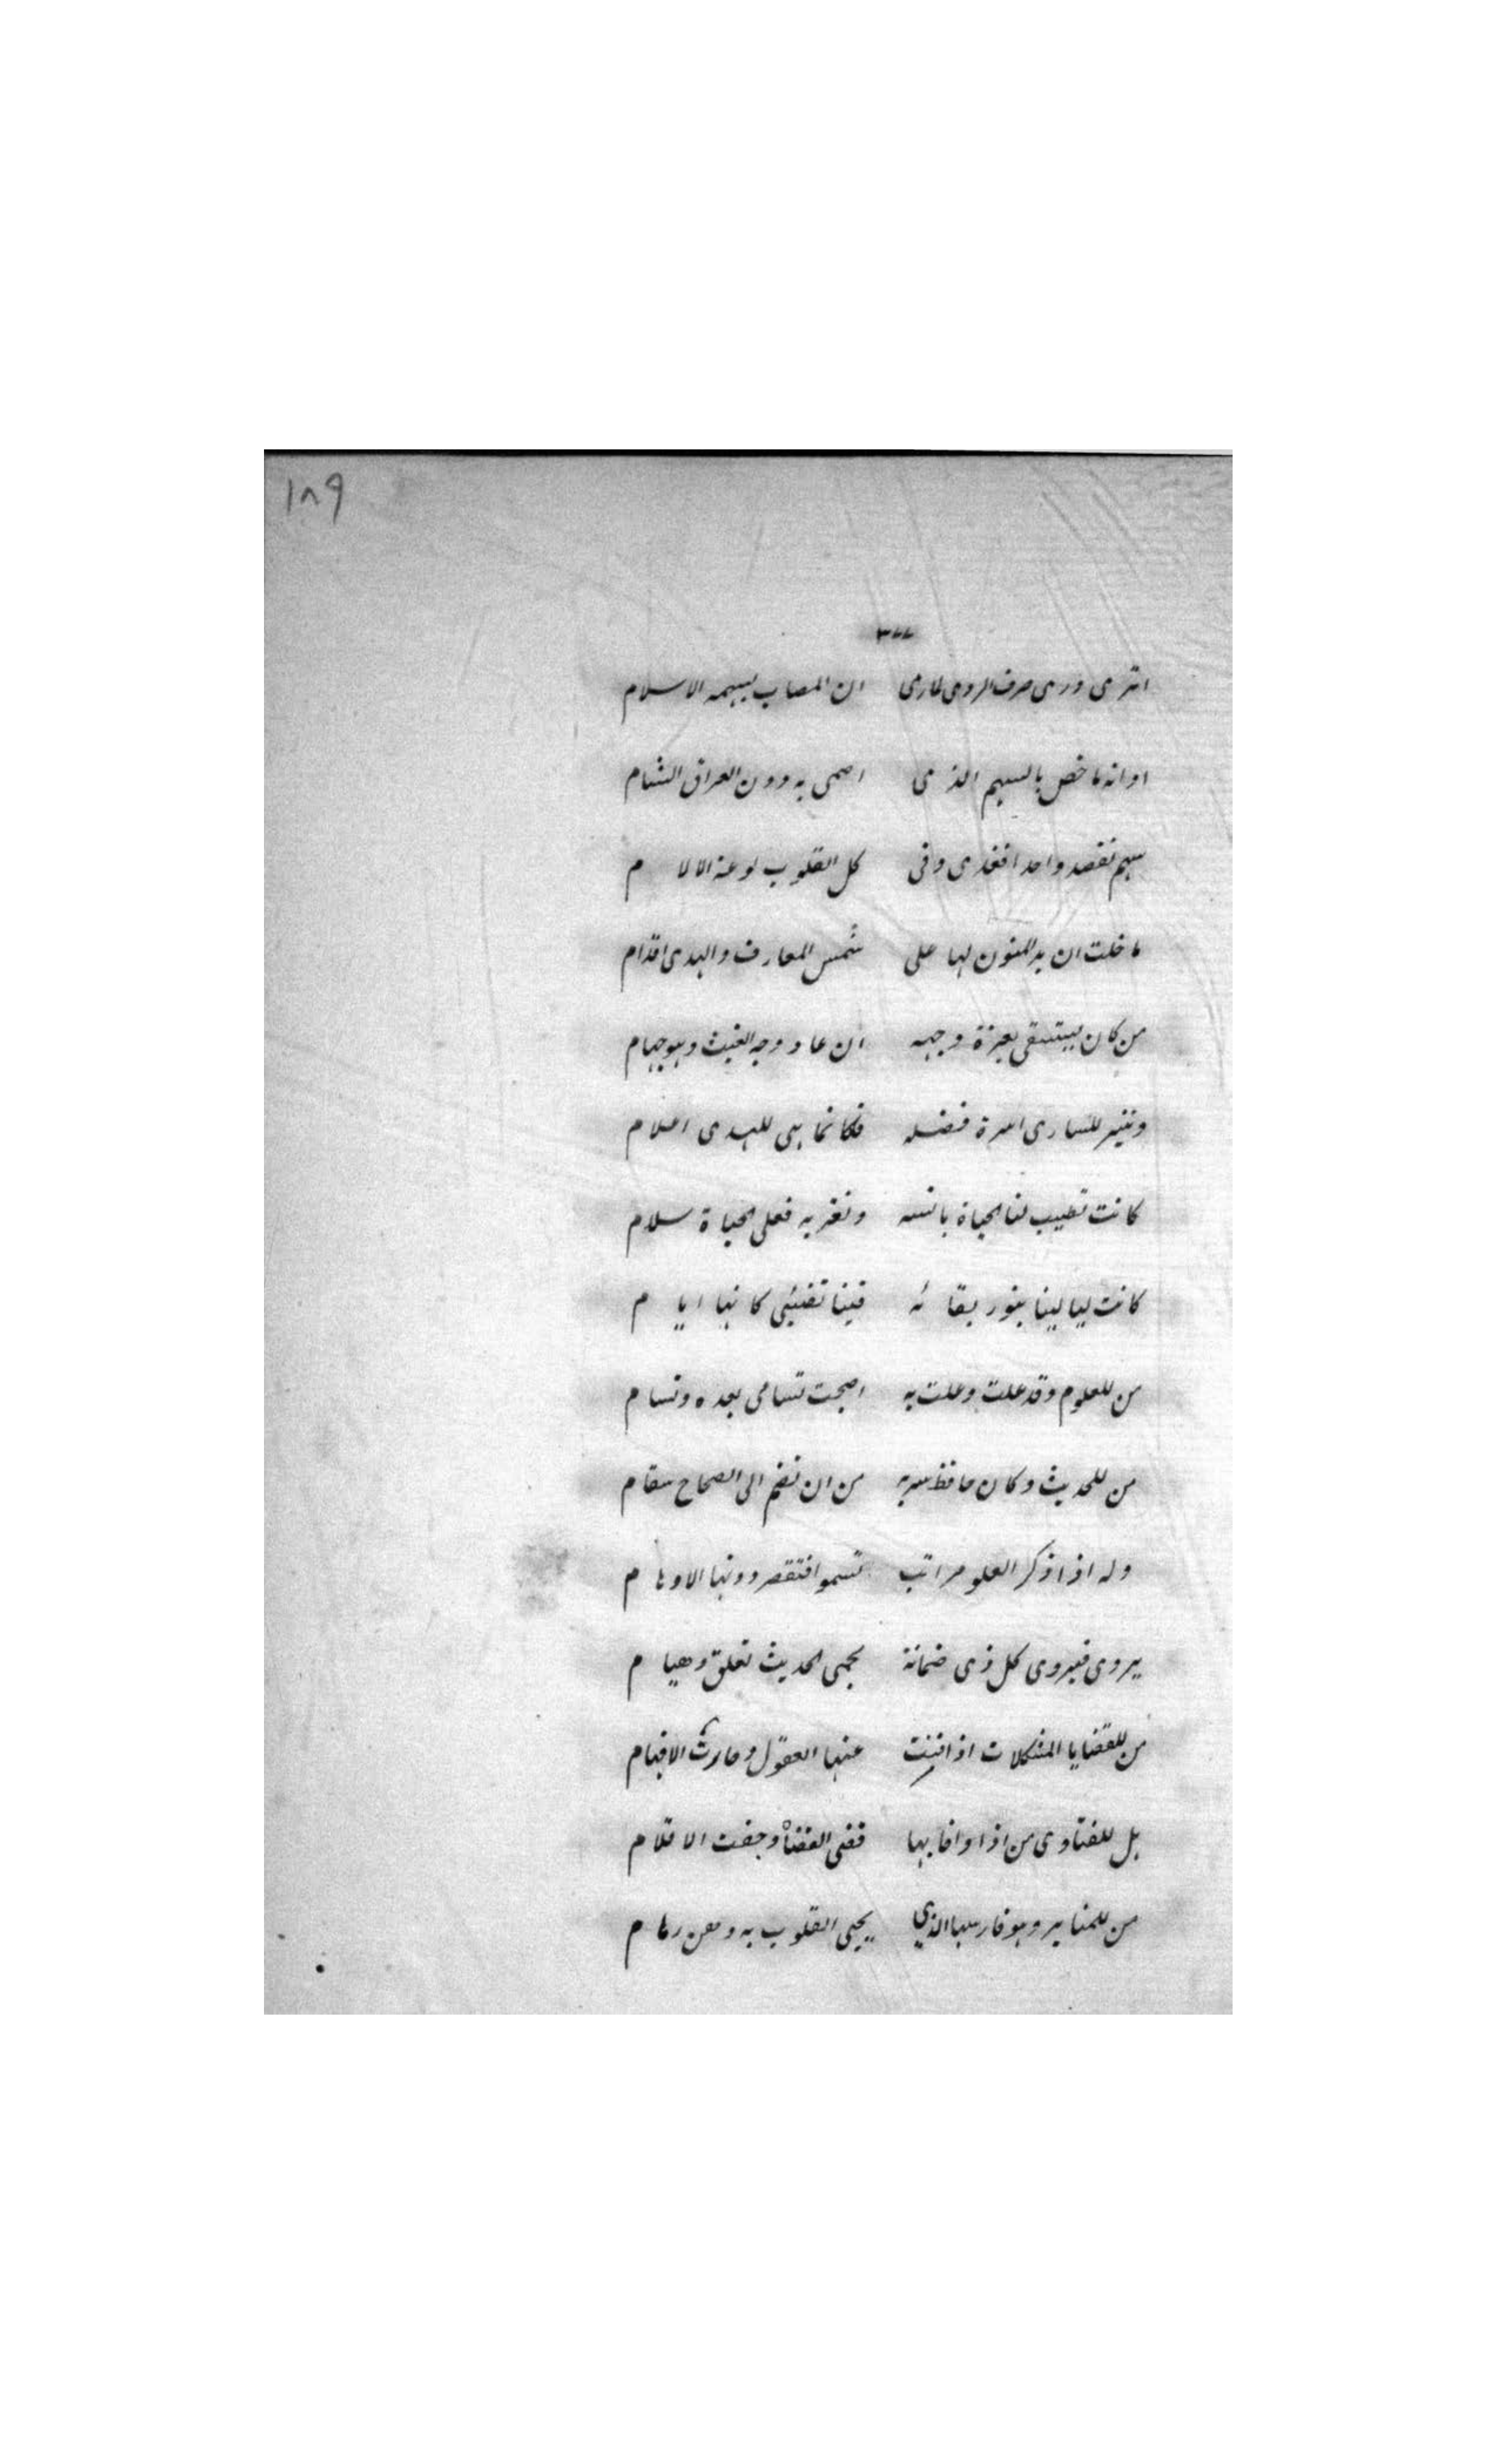 ١٨٩
٣٧٧
اترى درى صرف الردى لما رمى ان المصاب بسهمه الاسلام
اوانه ما خص بالسهم الذى اصمى به دون العراق الشام
سهم تقصد واحدا فغدى وفى كل القلوب لوعة الالام
ما خلت ان يد المنون لها على شمس المعارف والهدى اقدام
من كان يستسقى بعزة وجهه ان عاد وجه الغيث وهو جهام
وتنير للسارى اسرة فضله فكانما هى للهدى اعلام
كانت تطيب لنا الحياة بانسه وتغر به فعلى الحياة سلام
كانت ليالينا بنور بقائه فينا تضئى كانها ايام
من للعلوم وقد علت وعلت به اصبحت تسامى بعده وتسام
من للحديث وكان حافظ سربه من ان تضم الى الصحاح سقام
وله اذا ذكر العلوم مراتب تسموا فتقصر دونها الاوهام
يروى فيروى كل ذى ضمانة بحمى الحديث تعلق وهيام
من للقضايا المشكلات اذا نبت عنها العقول وحارت الافهام
بل للفتاوى من اذا وافا بها قضى القضاة وجفت الاقلام
من للمنابر وهو فارسها الذي يحيى القلوب به وهن رمام